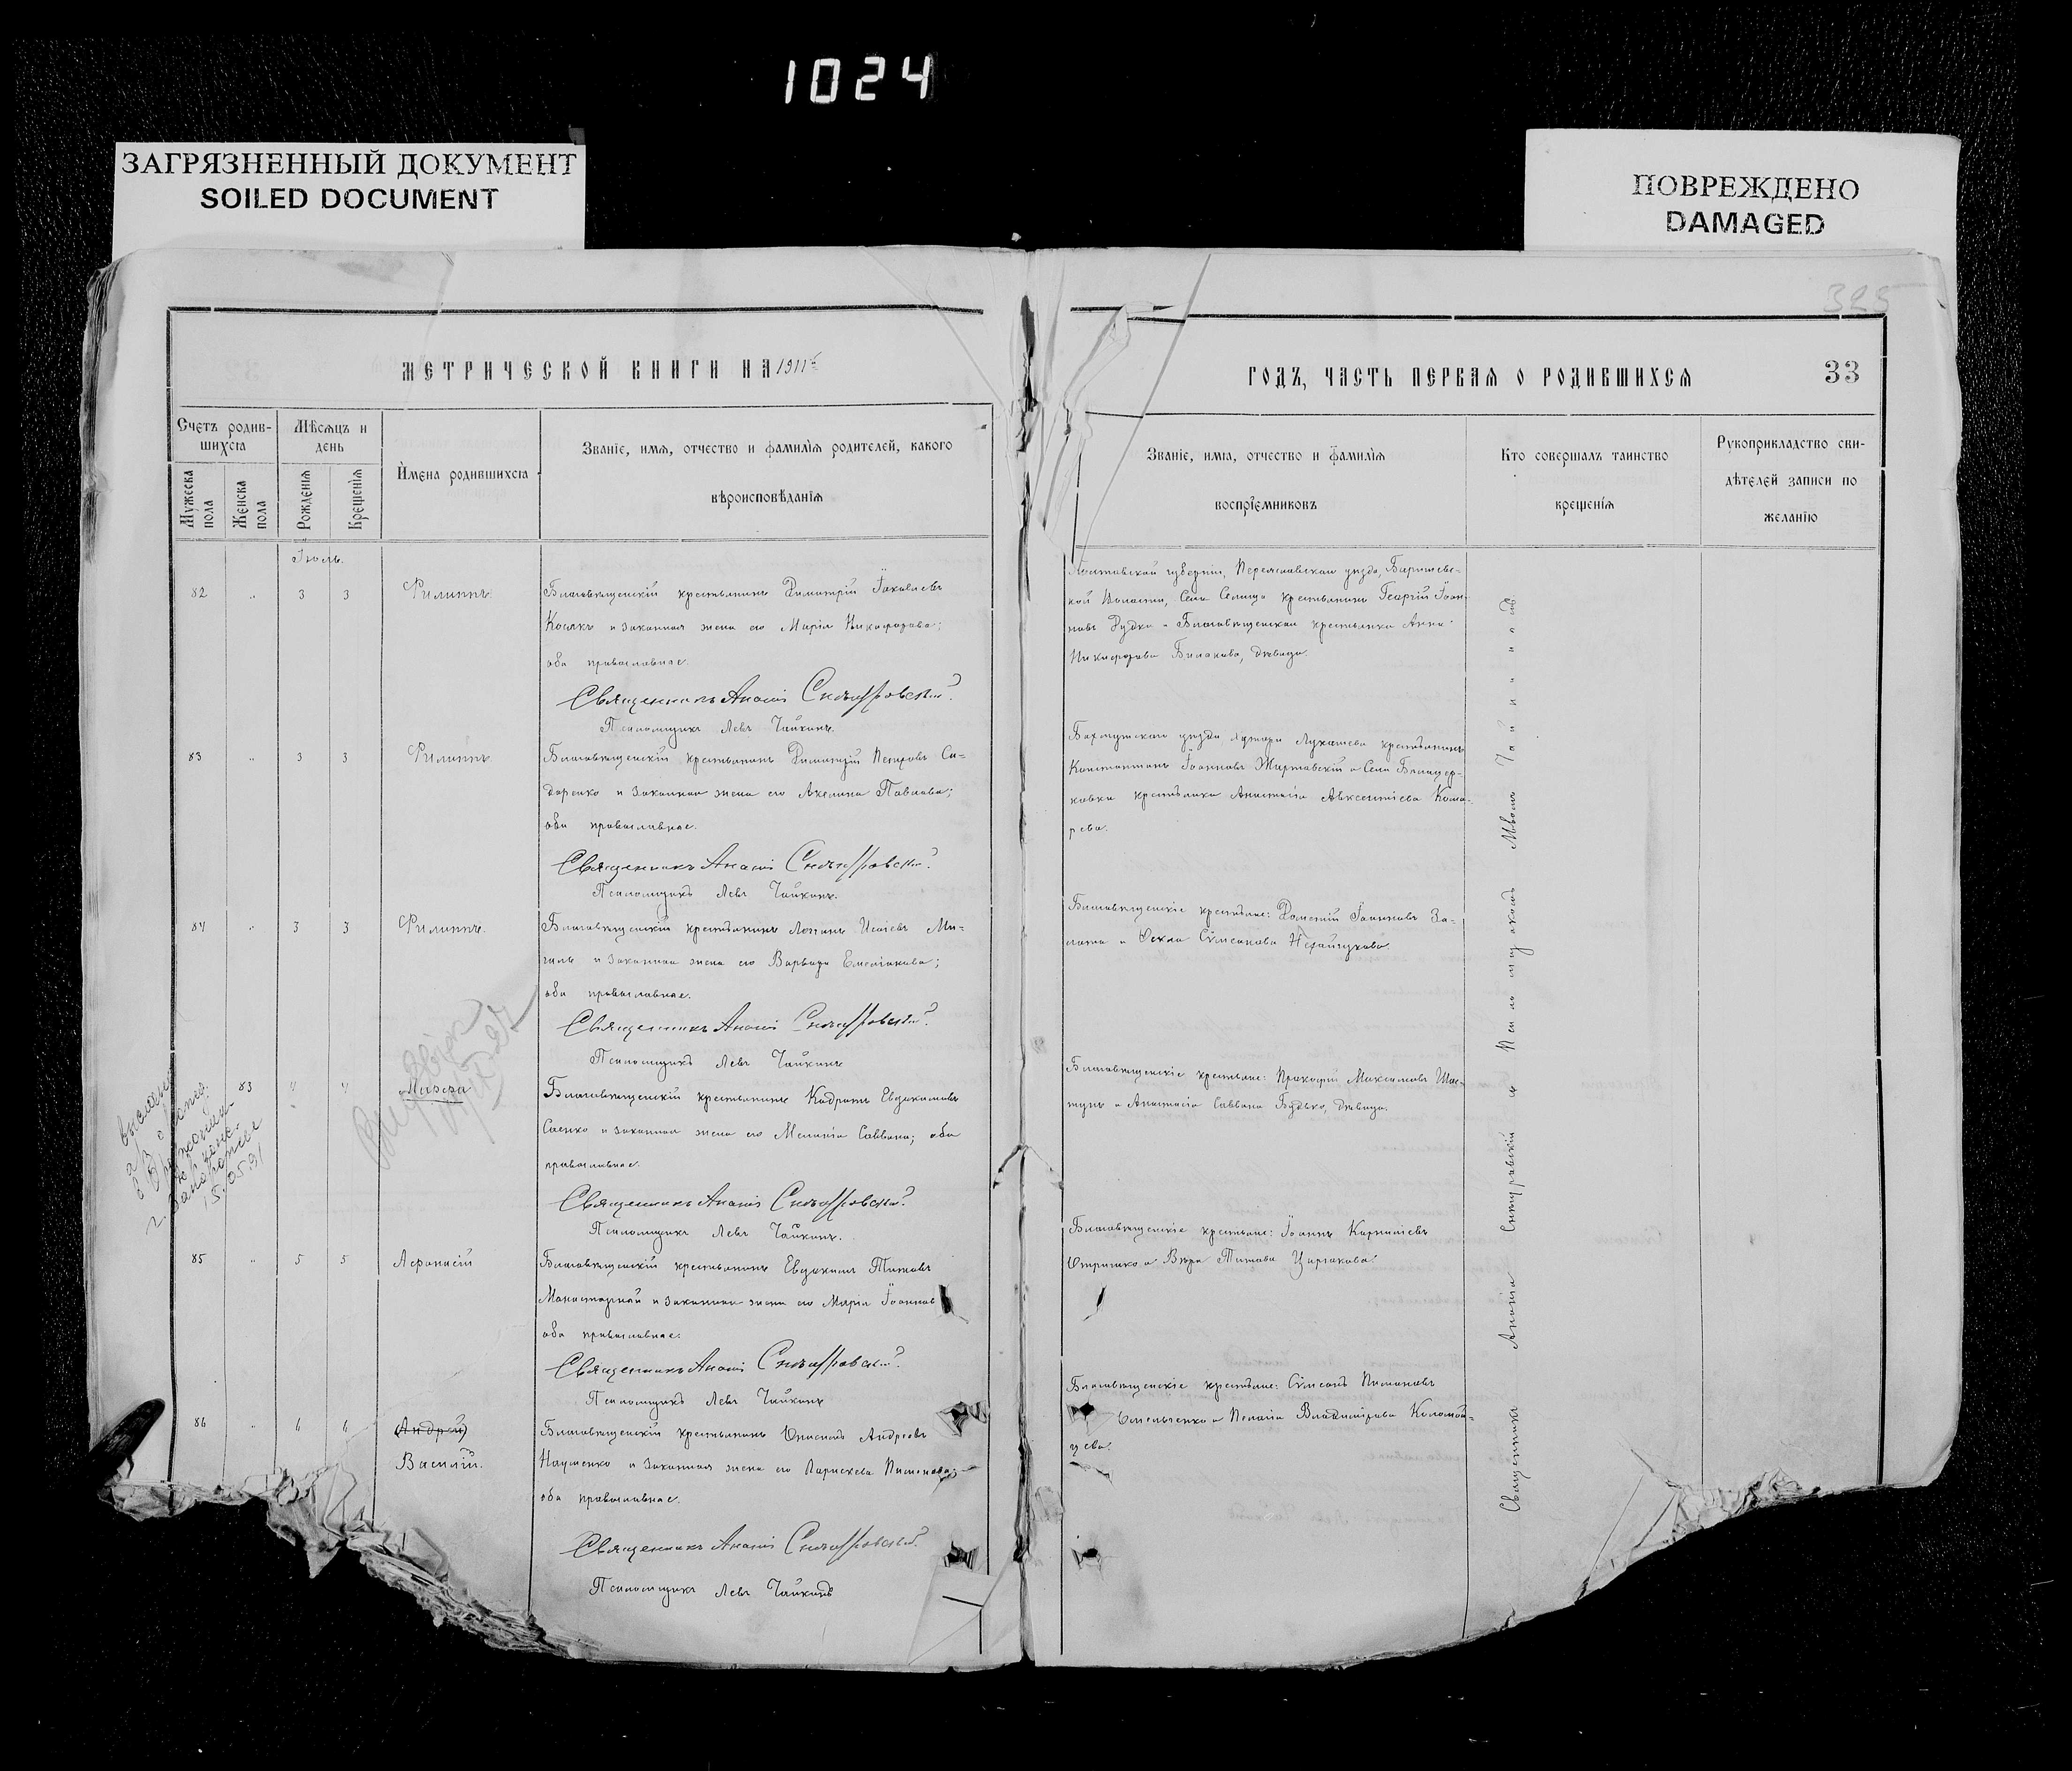 1024
ЗАГРЯЗНЕННЫЙ ДОКУМЕНТ
SOILED DOCUMENT
ПОВРЕЖДЕНО
DAMAGED
325
МЕТРИЧЕСКОЙ КНИГИ НА 1911й
ГОДЪ, ЧАСТЬ ПЕРВАЯ О РОДИВШИХСЯ
33
Счетъ родив-
шихся
Мужеска пола
Женска пола
Мѣсяцъ и день
Рожденія
Крещенія
Имена родившихся
Званіе, имя, отчество и фамилія родителей, какого
вѣроисповѣданія
Званіе, имя, отчество и фамилія
воспріемниковъ
Кто совершалъ таинство
крещенія
Рукоприкладство сви-
дѣтелей записи по
желанію
Іюль.
82 " 3 3 Филиппъ.
Благовѣщенскій крестьянинъ Димитрій Іаковлевъ
Косякъ и законная жена его Марія Никифорова;
оба православные.
Священникъ Ананій
Псаломщикъ Левъ Чайкинъ.
Полтавской губерніи, Переяславскаго уѣзда, Барышевс-
кой волости, села Селища крестьянинъ Георгій Іоан-
новъ Рудка и Благовѣщенская крестьянка Анна
Никифорова Билакова, дѣвица.
83 " 3 3 Филиппъ.
Благовѣщенскій крестьянинъ Димитрій Петровъ Си-
доренко и законная жена его Акелина Павлова;
оба православные.
Священникъ Ананій
Псаломщикъ Левъ Чайкинъ.
Бахмутскаго уѣзда хутора Лукашева крестьянинъ
Константинъ Іоанновъ и села
крестьянка Анастасія Авксентіева Кома-
рева.
84 " 3 3 Филиппъ.
Благовѣщенскій крестьянинъ Логинъ Исаіевъ Ми-
гиль и законная жена его Варвара Емеліанова;
оба православные.
Священникъ Ананій
Псаломщикъ Левъ Чайкинъ
Благовѣщенскіе крестьяне: Дометій Іоанновъ За-
лата и Ѳекла Сѵмеонова
" 83 4 4
Благовѣщенскій крестьянинъ Кодратъ Евдокимовъ
Саенко и законная жена его Меланія Саввина; оба
православные.
Священникъ Ананій
Псаломщикъ Левъ Чайкинъ.
Благовѣщенскіе крестьяне: Прокофій Максимовъ Шас-
тунъ и Анастасія Саввина Будько, дѣвица.
г. Запорожье
15.05.91
85 " 5 5 Афонасій
Благовѣщенскій крестьянинъ Евдокимъ Титовъ
Монастырный и законная жена его Марія Іоаннов
оба православные.
Священникъ Ананій
Псаломщикъ Левъ Чайкинъ
Благовѣщенскіе крестьяне: Іоаннъ Корниліевъ
Отришко и Вѣра Титова Цыганкова.
86 " 6 6 (Андрей)
Василій.
Благовѣщенскій крестьянинъ Онисимъ Андреевъ
Науменко и законная жена его Параскева Пименова;
оба православные.
Священникъ Ананій
Псаломщикъ Левъ Чайкинъ
Благовѣщенскіе крестьяне: Сѵмеонъ Пимоновъ
Омельченко и Пелагія Владимірова Коломой-
цева.
Священникъ Ананій Снѣгуровскій и Псаломщикъ Левъ Чайкинъ